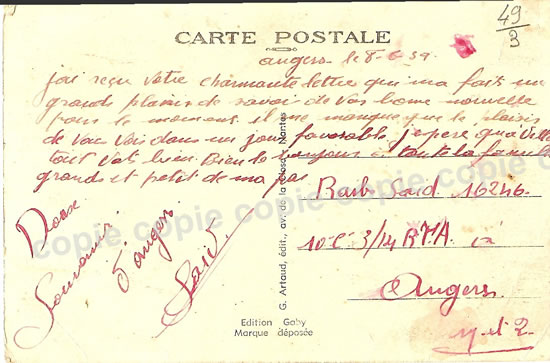 49
3
CARTE POSTALE
Angers le 8-6-39
jai reçu votre charmante lettre qui ma fait un
grands plaisir de savoir de vos bonne nouvelle
pour le moment il me manque que le plaisir
de vous voir dans un jour favorable j'espere qua
tout vat bien Bien le bonjour a toute la famille
grands et petit de ma par
Doux
Souvenir
d'angers
Said
Rarb Said 16246
10e Cie 3/14 RTA
Angers
M et L
G. Artaud, édit., av. de la Close, Nantes
Edition Gaby
Marque déposée
copie copie copie copie copie copie